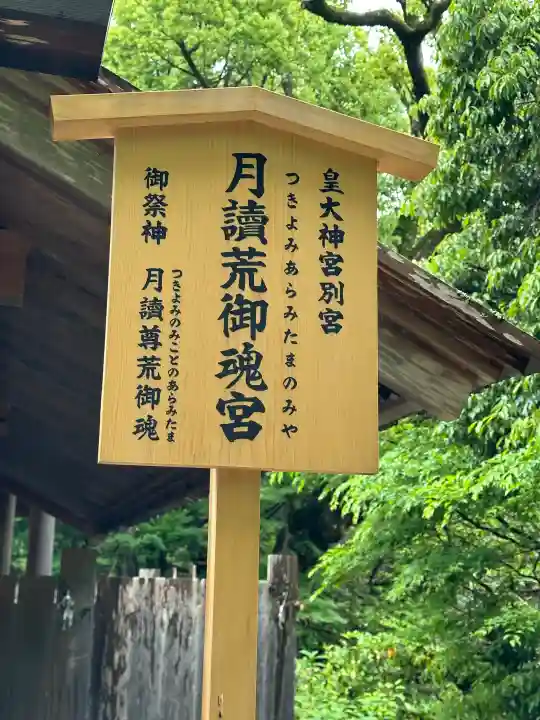 皇大神宮別宮
つきよみあらみたまのみや
月讀荒御魂宮
つきよみのみことのあらみたま
御祭神 月讀尊荒御魂